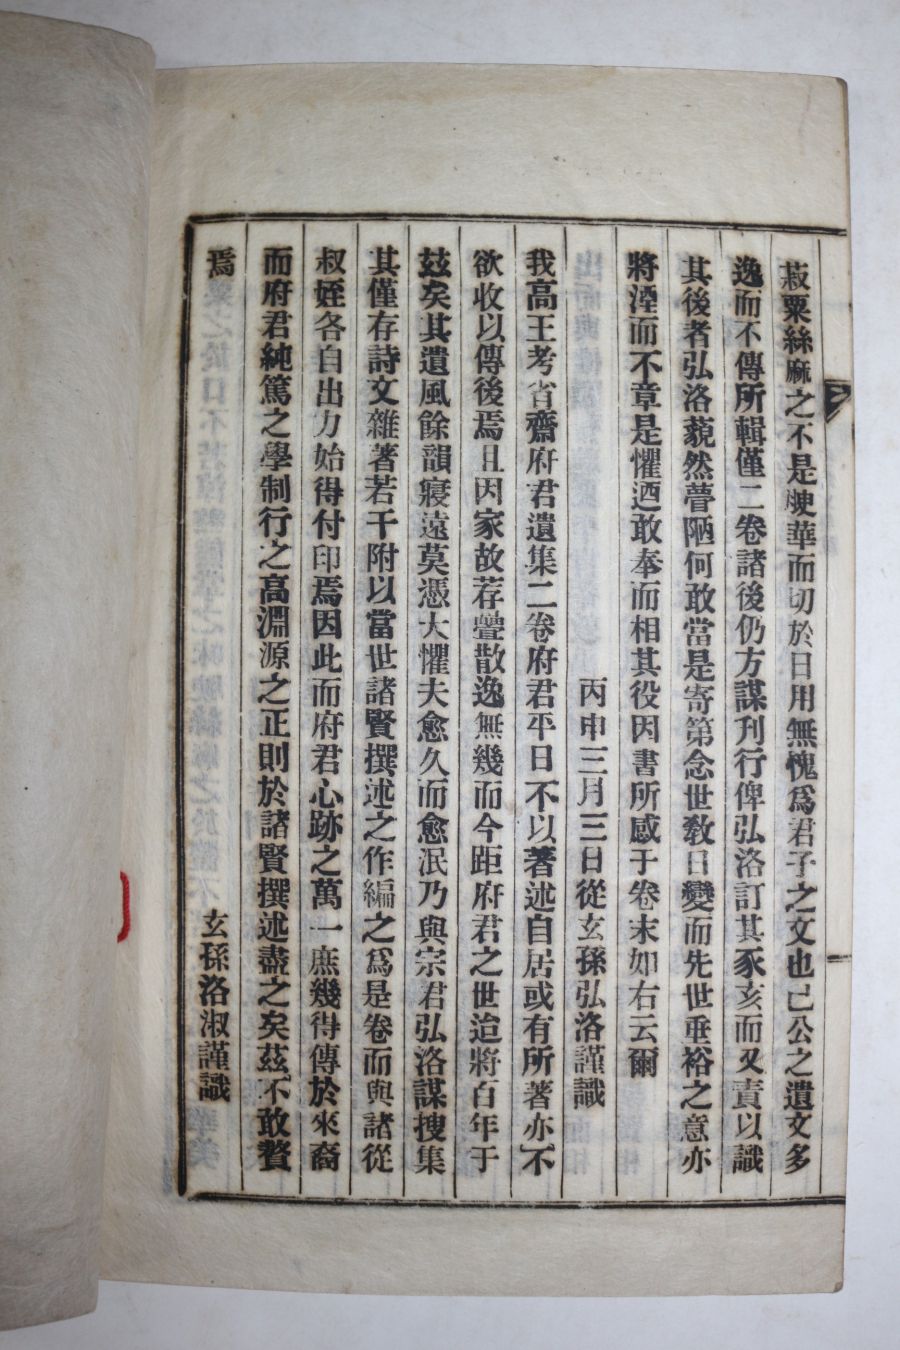 菽粟絲麻之不是睫華而切於日用無愧爲君子之文也已公之遺文多
逸而不傳所輯僅二卷諸後仍方謀刊行俾弘洛訂其豕亥而又責以識
其後者弘洛藐然瞢陋何敢當是寄第念世敎日變而先世垂裕之意亦
將湮而不章是懼迺敢奉而相其役因書所感于卷末如右云爾
丙申三月三日從玄孫弘洛謹識
我高王考省齋府君遺集二卷府君平日不以著述自居或有所著亦不
欲收以傳後焉且因家故荐疊散逸無幾而今距府君之世迨將百年于
玆矣其遺風餘韻寢遠莫憑大懼夫愈久而愈泯乃與宗君弘洛謀搜集
其僅存詩文雜著若干附以當世諸賢撰述之作編之爲是卷而與諸從
叔姪各自出力始得付印焉因此而府君心跡之萬一庶幾得傳於來裔
而府君純篤之學制行之高淵源之正則於諸賢撰述盡之矣茲不敢贅
焉
玄孫洛淑謹識